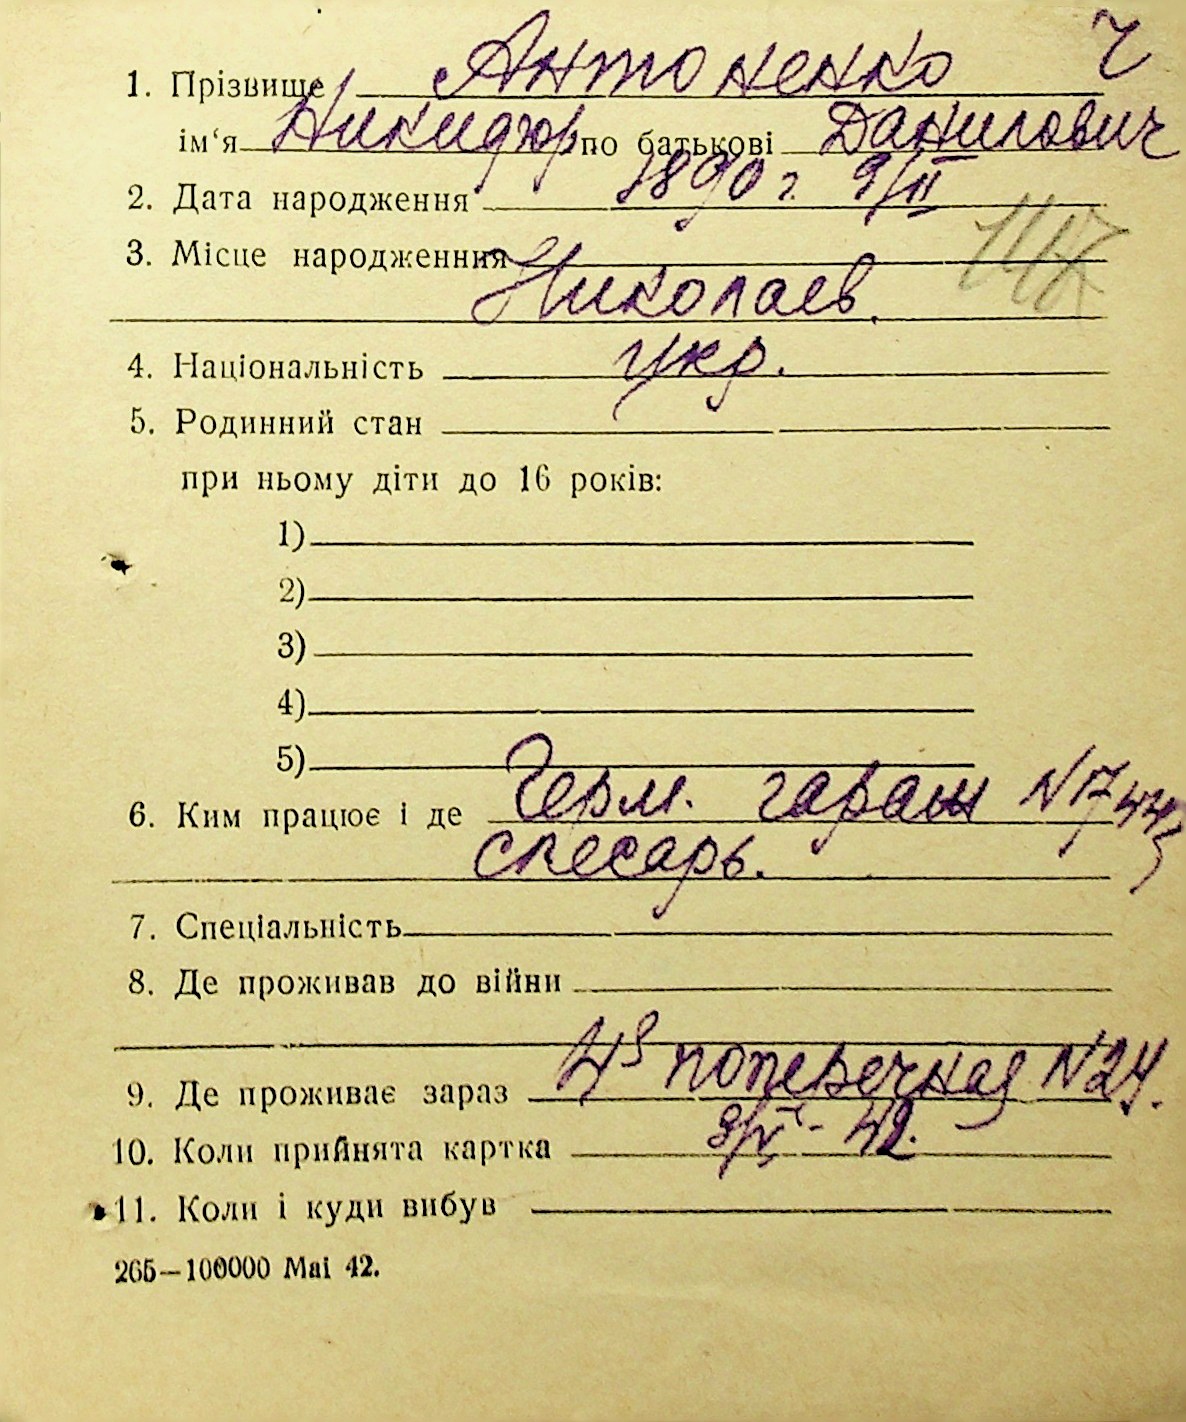 1. Прізвище Антоненко ч
ім‘я Никифор по батькові Данилович
2. Дата народження 1890 г. 9/II
3. Місце народженння
Николаев.
4. Національність укр.
5. Родинний стан
при ньому діти до 16 років:
1)
2)
3)
4)
5)
6. Ким працює і де Герм. гараж №
слесарь.
7. Спеціальність
8. Де проживав до війни
9. Де проживає зараз 4я поперечная №24.
10. Коли прийнята картка 42.
11. Коли і куди вибув
265—100000 Mai 42.